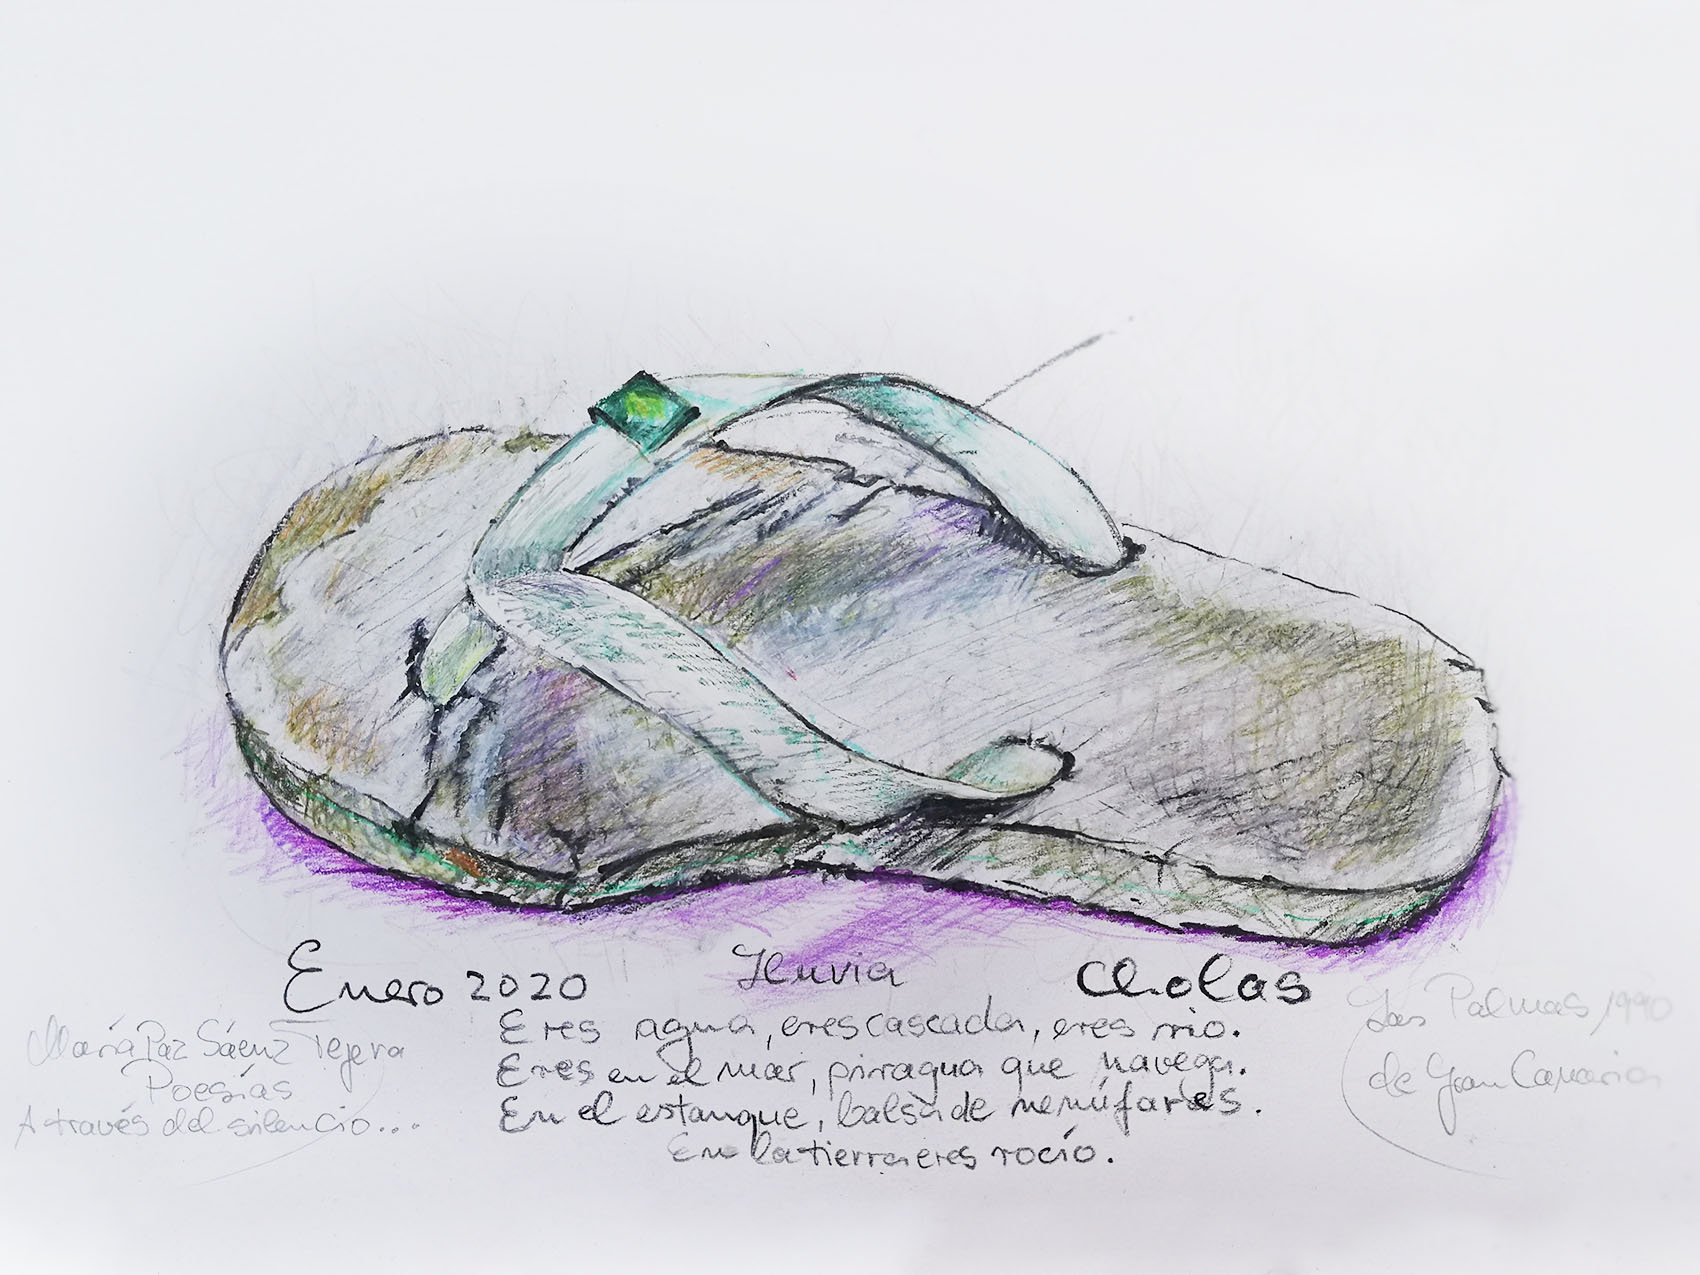 Enero 2020
lluvia
Cholas
Eres agua, eres cascada, eres río.
Eres en el mar, piragua que navega.
En el estanque, balsa de nenúfares.
En la tierra eres rocío.
María Paz Sáenz Tejera
Poesías
A través del silencio...
Las Palmas, 1990
de Gran Canaria